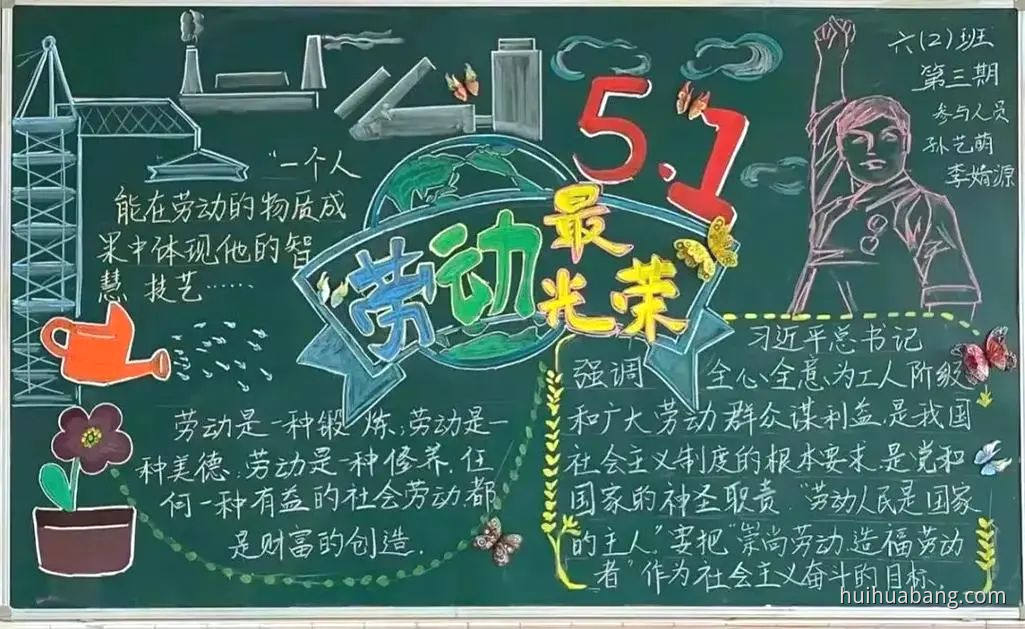 六(2)班
第三期
参与人员
孙艺萌
李婧源
5.1
劳动最光荣
"一个人
能在劳动的物质成
果中体现他的智
慧 技艺……
劳动是一种锻炼,劳动是一
种美德,劳动是一种修养,任
何一种有益的社会劳动,都
是财富的创造.
习近平总书记
强调 全心全意,为工人阶级
和广大劳动群众谋利益,是我国
社会主义制度的根本要求,是党和
国家的神圣职责."劳动人民是国家
的主人",要把"崇尚劳动,造福劳动
者"作为社会主义奋斗的目标.
huihuabang.com